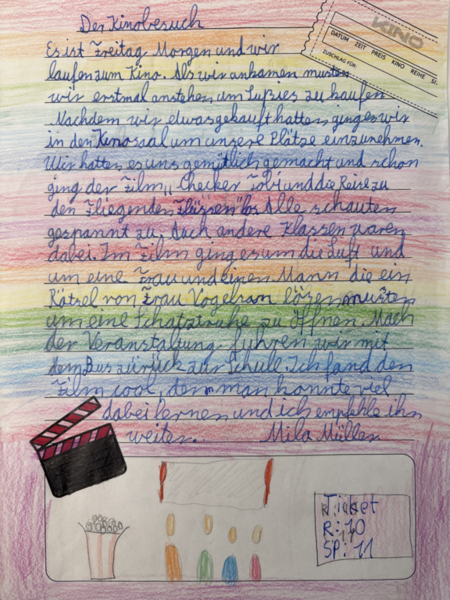 Der Kinobesuch
KINO
DATUM ZEIT PREIS KINO REIHE SI
ZUSCHLAG FÜR:
Es ist Freitag Morgen und wir
laufen zum Kino. Als wir ankamen mussten
wir erstmal anstehen, um Süßies zu kaufen
Nachdem wir etwas gekauft hatten ginges wir
in den Kinosaal um unsere Plätze einzunehmen.
Wir hatten es uns gemütlich gemacht und schon
ging der Film „Checker Tobi und die Reise zu
den Fliegenden Flüssen" los. Alle schauten
gespannt zu. Doch andere Klassen waren
dabei. Im Film ging es um die Luft und
um eine Frau und einen Mann die ein
Rätsel von Frau Vogelsan lözen mussten
um eine Schatztruhe zu Öffnen. Nach
der Veranstaltung fuhren wir mit
dem Bus zurück zur Schule. Ich fand den
Film cool, denn man konnte viel
dabei lernen und ich empfehle ihn
weiter. Mila Müller
Ticket
R: 10
SP: 11